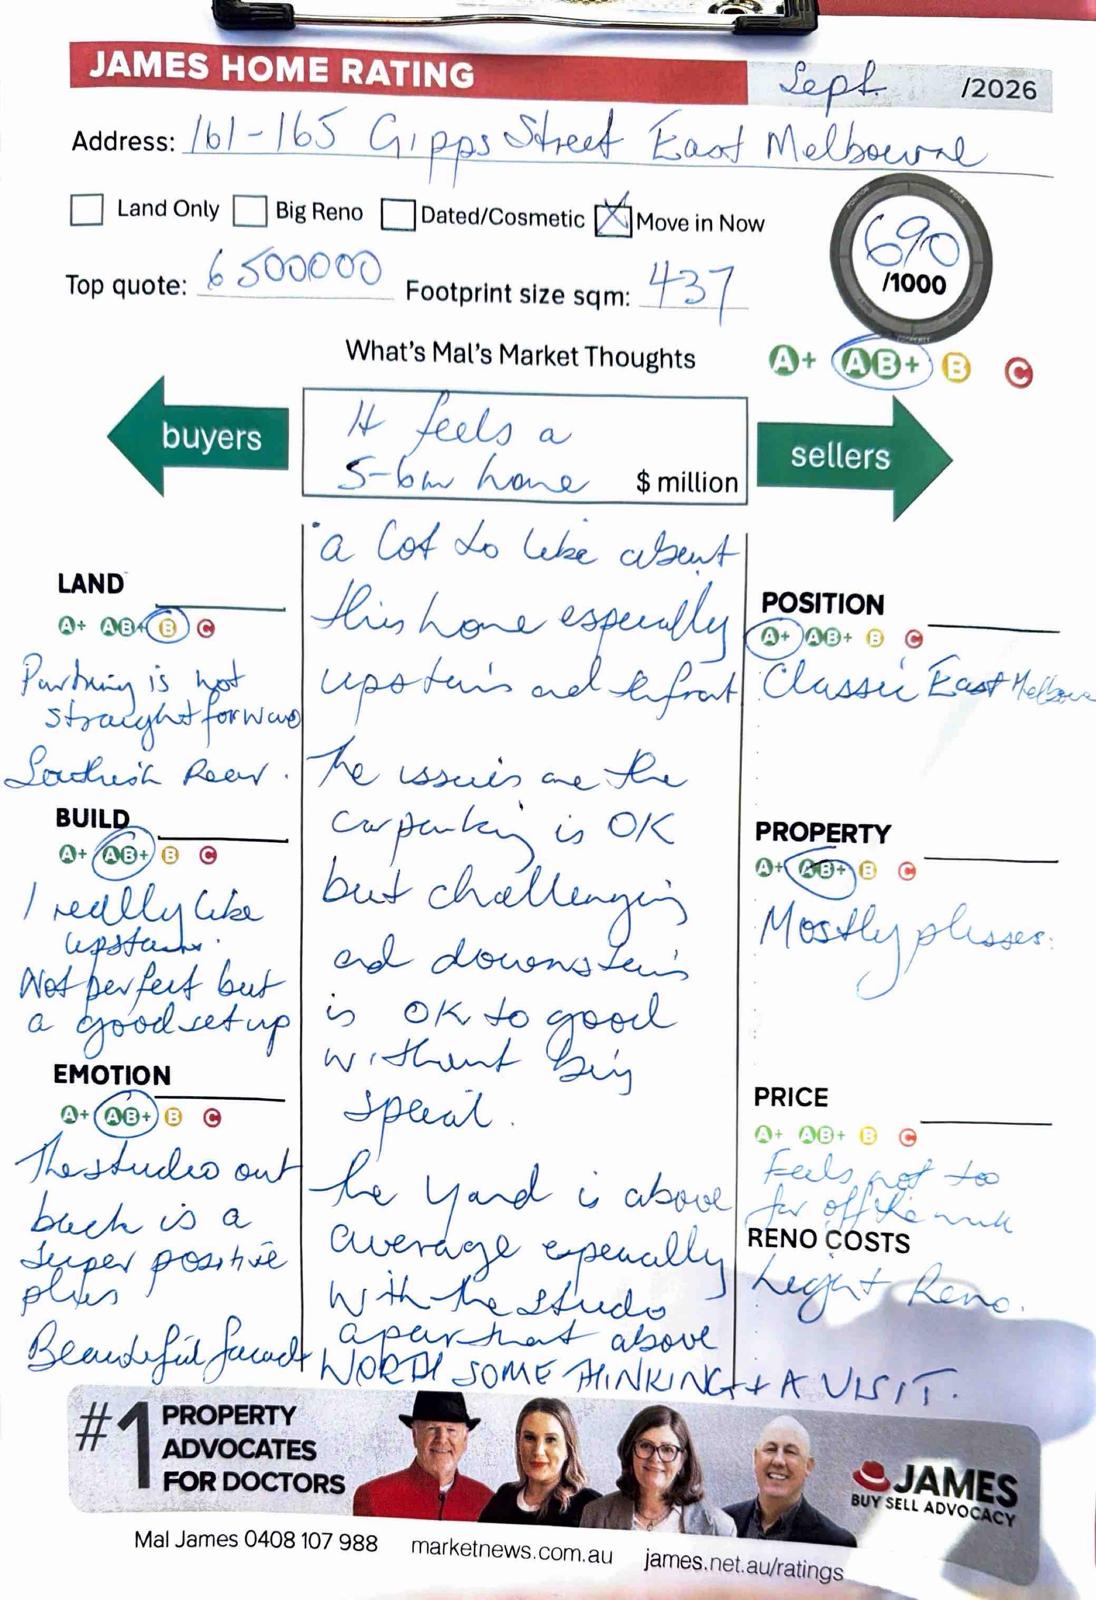 JAMES HOME RATING
Sept. /2026
Address: 161-165 Gipps Street East Melbourne
Land Only Big Reno Dated/Cosmetic Move in Now
690
/1000
Top quote: 6500000 Footprint size sqm: 437
What's Mal's Market Thoughts
A+ AB+ B C
buyers
It feels a
5-6m home $ million
sellers
a lot to like about
this home especially
upstairs and
The issues are the
carparking is OK
but challenging
and downstairs
is OK to good
without being
special.
The yard is above
average especially
with the studio
apartment above
WORTH SOME THINKING + A VISIT.
LAND
A+ AB+ B C
Parking is not
straightforward
Southish Rear.
BUILD
A+ AB+ B C
I really like
upstairs.
Not perfect but
a good set up
EMOTION
A+ AB+ B C
The studio out
back is a
super positive
plus
Beautiful facade
POSITION
A+ AB+ B C
Classic East Melbourne
PROPERTY
A+ AB+ B C
Mostly plusses.
PRICE
A+ AB+ B C
Feels not too
far off the mark
RENO COSTS
Light Reno.
#1 PROPERTY
ADVOCATES
FOR DOCTORS
JAMES
BUY SELL ADVOCACY
Mal James 0408 107 988 marketnews.com.au james.net.au/ratings